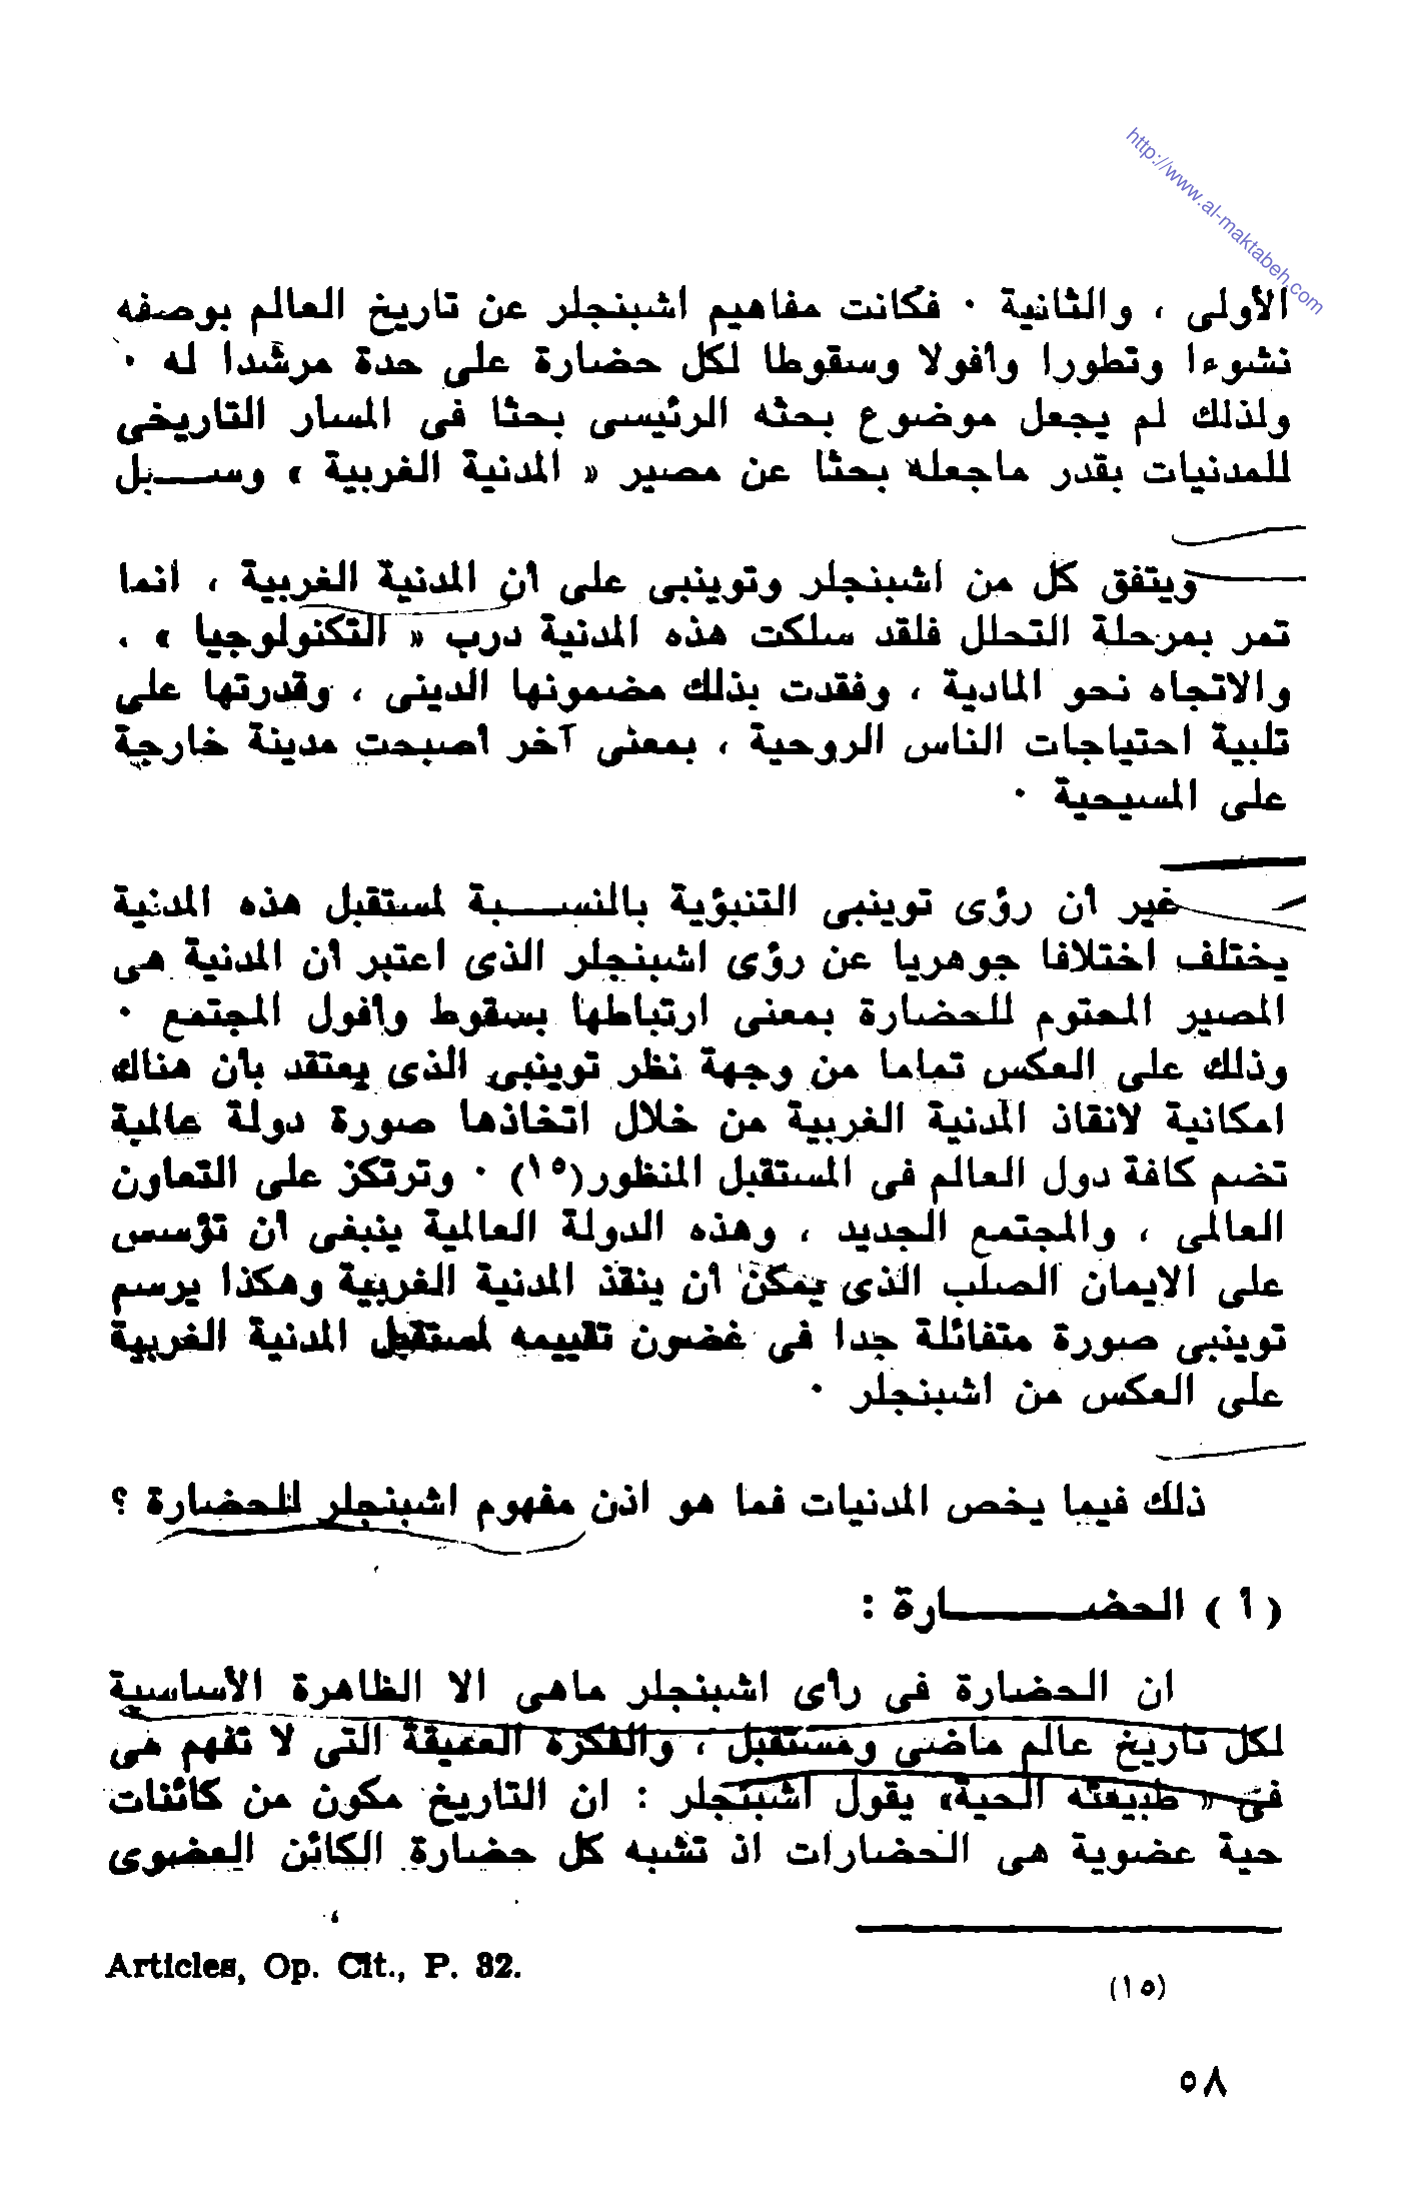 http://www.al-maktabeh.com
الأولى ، والثانية ٠ فكانت مفاهيم اشبنجلر عن تاريخ العالم بوصفه
نشوءا وتطورا وأفولا وسقوطا لكل حضارة على حدة مرشدا له ٠
ولذلك لم يجعل موضوع بحثه الرئيسى بحثا فى المسار التاريخى
للمدنيات بقدر ماجعله بحثا عن مصير « المدنية الغربية » وسـبل
ويتفق كل من اشبنجلر وتوينبى على أن المدنية الغربية ، انما
تمر بمرحلة التحلل فلقد سلكت هذه المدنية درب « التكنولوجيا » .
والاتجاه نحو المادية ، وفقدت بذلك مضمونها الدينى ، وقدرتها على
تلبية احتياجات الناس الروحية ، بمعنى آخر أصبحت مدينة خارجة
على المسيحية ٠
غير أن رؤى توينبى التنبؤية بالنسـبة لمستقبل هذه المدنية
يختلف اختلافا جوهريا عن رؤى اشبنجلر الذى اعتبر أن المدنية هى
المصير المحتوم للحضارة بمعنى ارتباطها بسقوط وأفول المجتمع ٠
وذلك على العكس تماما من وجهة نظر توينبى الذى يعتقد بأن هناك
امكانية لانقاذ المدنية الغربية من خلال اتخاذها صورة دولة عالمية
تضم كافة دول العالم فى المستقبل المنظور(١٥) ٠ وترتكز على التعاون
العالمى ، والمجتمع الجديد ، وهذه الدولة العالمية ينبغى أن تؤسس
على الايمان الصلب الذى يمكن أن ينقذ المدنية الغربية وهكذا يرسم
توينبى صورة متفائلة جدا فى غضون تقييمه لمستقبل المدنية الغربية
على العكس من اشبنجلر ٠
ذلك فيما يخص المدنيات فما هو اذن مفهوم اشبنجلر للحضارة ؟
( أ ) الحضـــارة :
ان الحضارة فى رأى اشبنجلر ماهى الا الظاهرة الأساسية
لكل تاريخ عالم ماضى ومستقبل ، والفكرة العميقة التى لا تفهم هى
فى « طبيعته الحية» يقول اشبنجلر : ان التاريخ مكون من كائنات
حية عضوية هى الحضارات اذ تشبه كل حضارة الكائن العضوى
(١٥) Articles, Op. Cit., P. 32.
٥٨